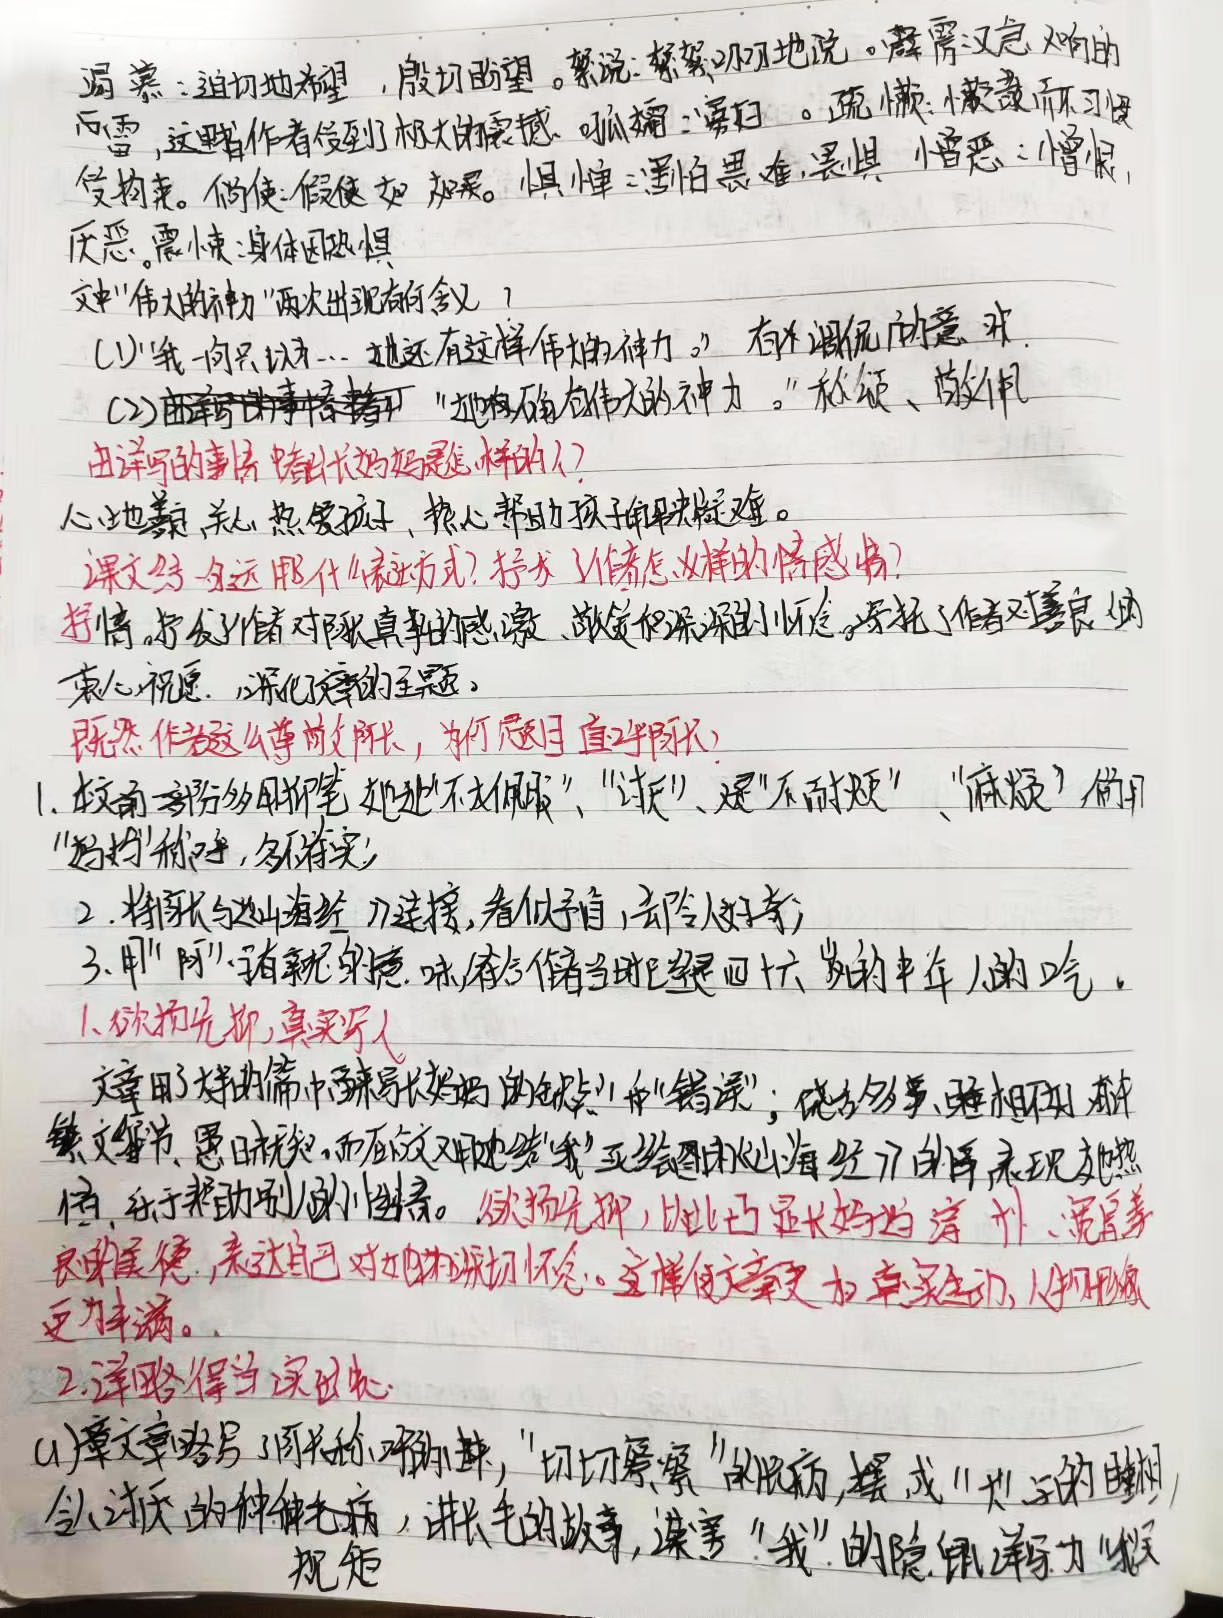 渴慕：迫切地希望，殷切盼望。絮说：絮絮叨叨地说。霹雳：又急又响的
雷，这里指作者受到了极大的震感。孤孀：寡妇。疏懒：懒散而不习惯
受拘束。倘使：假使 如 如果。惧惮：害怕畏难，畏惧 憎恶：憎恨，
厌恶。震悚：身体因恐惧
文中"伟大的神力"两次出现有何含义？
(1)"我一向只以为…她还有这样伟大的神力。" 有 调侃的意味.
(2) "她确有伟大的神力。"称颂、敬佩
由详写的事情中看出长妈妈是怎样的人？
心地善良，关心 热爱孩子，热心帮助孩子解决疑难。
课文结 运用什么表达方式？抒发了作者怎么样的情感 ？
抒情。抒发了作者对阿长真挚的感激、敬爱和深深的怀念。寄托了作者对善良人的
衷心祝愿.，深化文章的主题。
既然作者这么尊敬阿长，为何题目直呼阿长？
1. 本文前部份多用抑笔 她"不大佩服"、"讨厌"、 "不耐烦"、"麻烦" 倘用
"妈妈"称呼，名不符实；
2. 将阿长与《山海经》连接，看似矛盾，却令人好奇；
3. 用"阿"字有亲昵的意味，符合作者当时已经是四十六岁的中年人的口吃。
1、欲扬先抑，真实写人
文章用了大半的篇 来写长妈妈的"缺点"和"错误"；饶舌多事、睡相不好 讲
繁文缛节、愚昧无知。而在后文又用她给"我"买绘图的《山海经》的事，表现她热
情、乐于帮助别人的性格。欲扬先抑，以此凸显长妈妈淳朴、宽厚善
良的美德，表达自己对她的深切怀念。这样使文章更为真实生动、人物形象
更为丰满。
2.详略得当
(1) 文章略写了阿长称呼的由来，"切切察察"的脱病，摆成"大"字的睡相，
令人讨厌的种种毛病，讲长毛的故事，谋害"我"的隐鼠详写为"我买
规矩